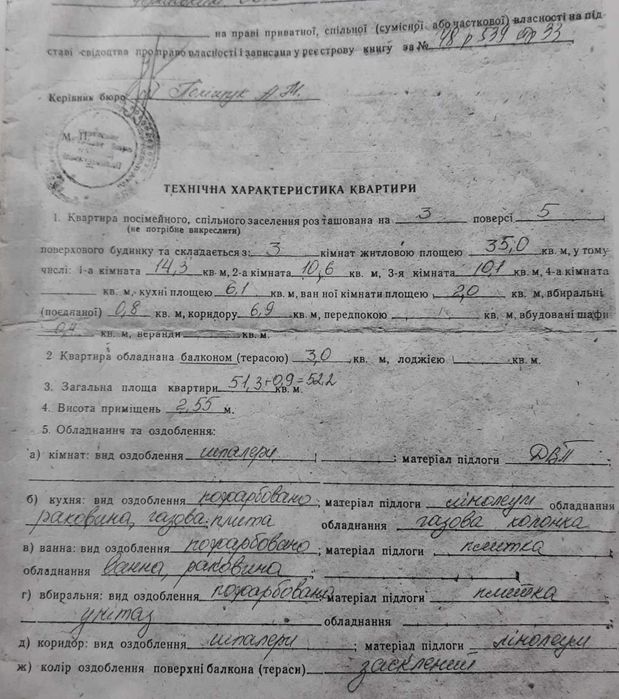 на праві приватної, спільної (сумісної або часткової) власності на під-
ставі свідоцтва про право власності і записана у реєстрову книгу за № 48 р 539 стр 33
Керівник бюро
М. П.
ТЕХНІЧНА ХАРАКТЕРИСТИКА КВАРТИРИ
1. Квартира посімейного, спільного заселення розташована на 3 поверсі 5
(не потрібне викреслити)
поверхового будинку та складається з: 3 кімнат житловою площею 35,0 кв. м, у тому
числі: 1-а кімната 14,3 кв. м, 2-а кімната 10,6 кв. м, 3-я кімната 10,1 кв. м, 4-а кімната
кв. м, кухні площею 6,1 кв. м, ванної кімнати площею 2,0 кв. м, вбиральні
(поєднаної) 0,8 кв. м, коридору 6,9 кв. м, передпокою кв. м, вбудовані шафи
0,4 кв. м, веранди кв. м.
2 Квартира обладнана балконом (терасою) 3,0 кв. м, лоджією кв. м.
3. Загальна площа квартири 51,3+0,9=52,2 кв. м.
4. Висота приміщень 2,55 м.
5. Обладнання та оздоблення:
а) кімнат: вид оздоблення шпалери ; матеріал підлоги ДВП
б) кухня: вид оздоблення пофарбовано; матеріал підлоги лінолеум обладнання
раковина, газова плита обладнання газова колонка
в) ванна: вид оздоблення пофарбовано; матеріал підлоги плитка
обладнання ванна, раковина
г) вбиральня: вид оздоблення пофарбована матеріал підлоги плитка
унітаз обладнання
д) коридор: вид оздоблення шпалери; матеріал підлоги лінолеум
ж) колір оздоблення поверхні балкона (тераси) засклений